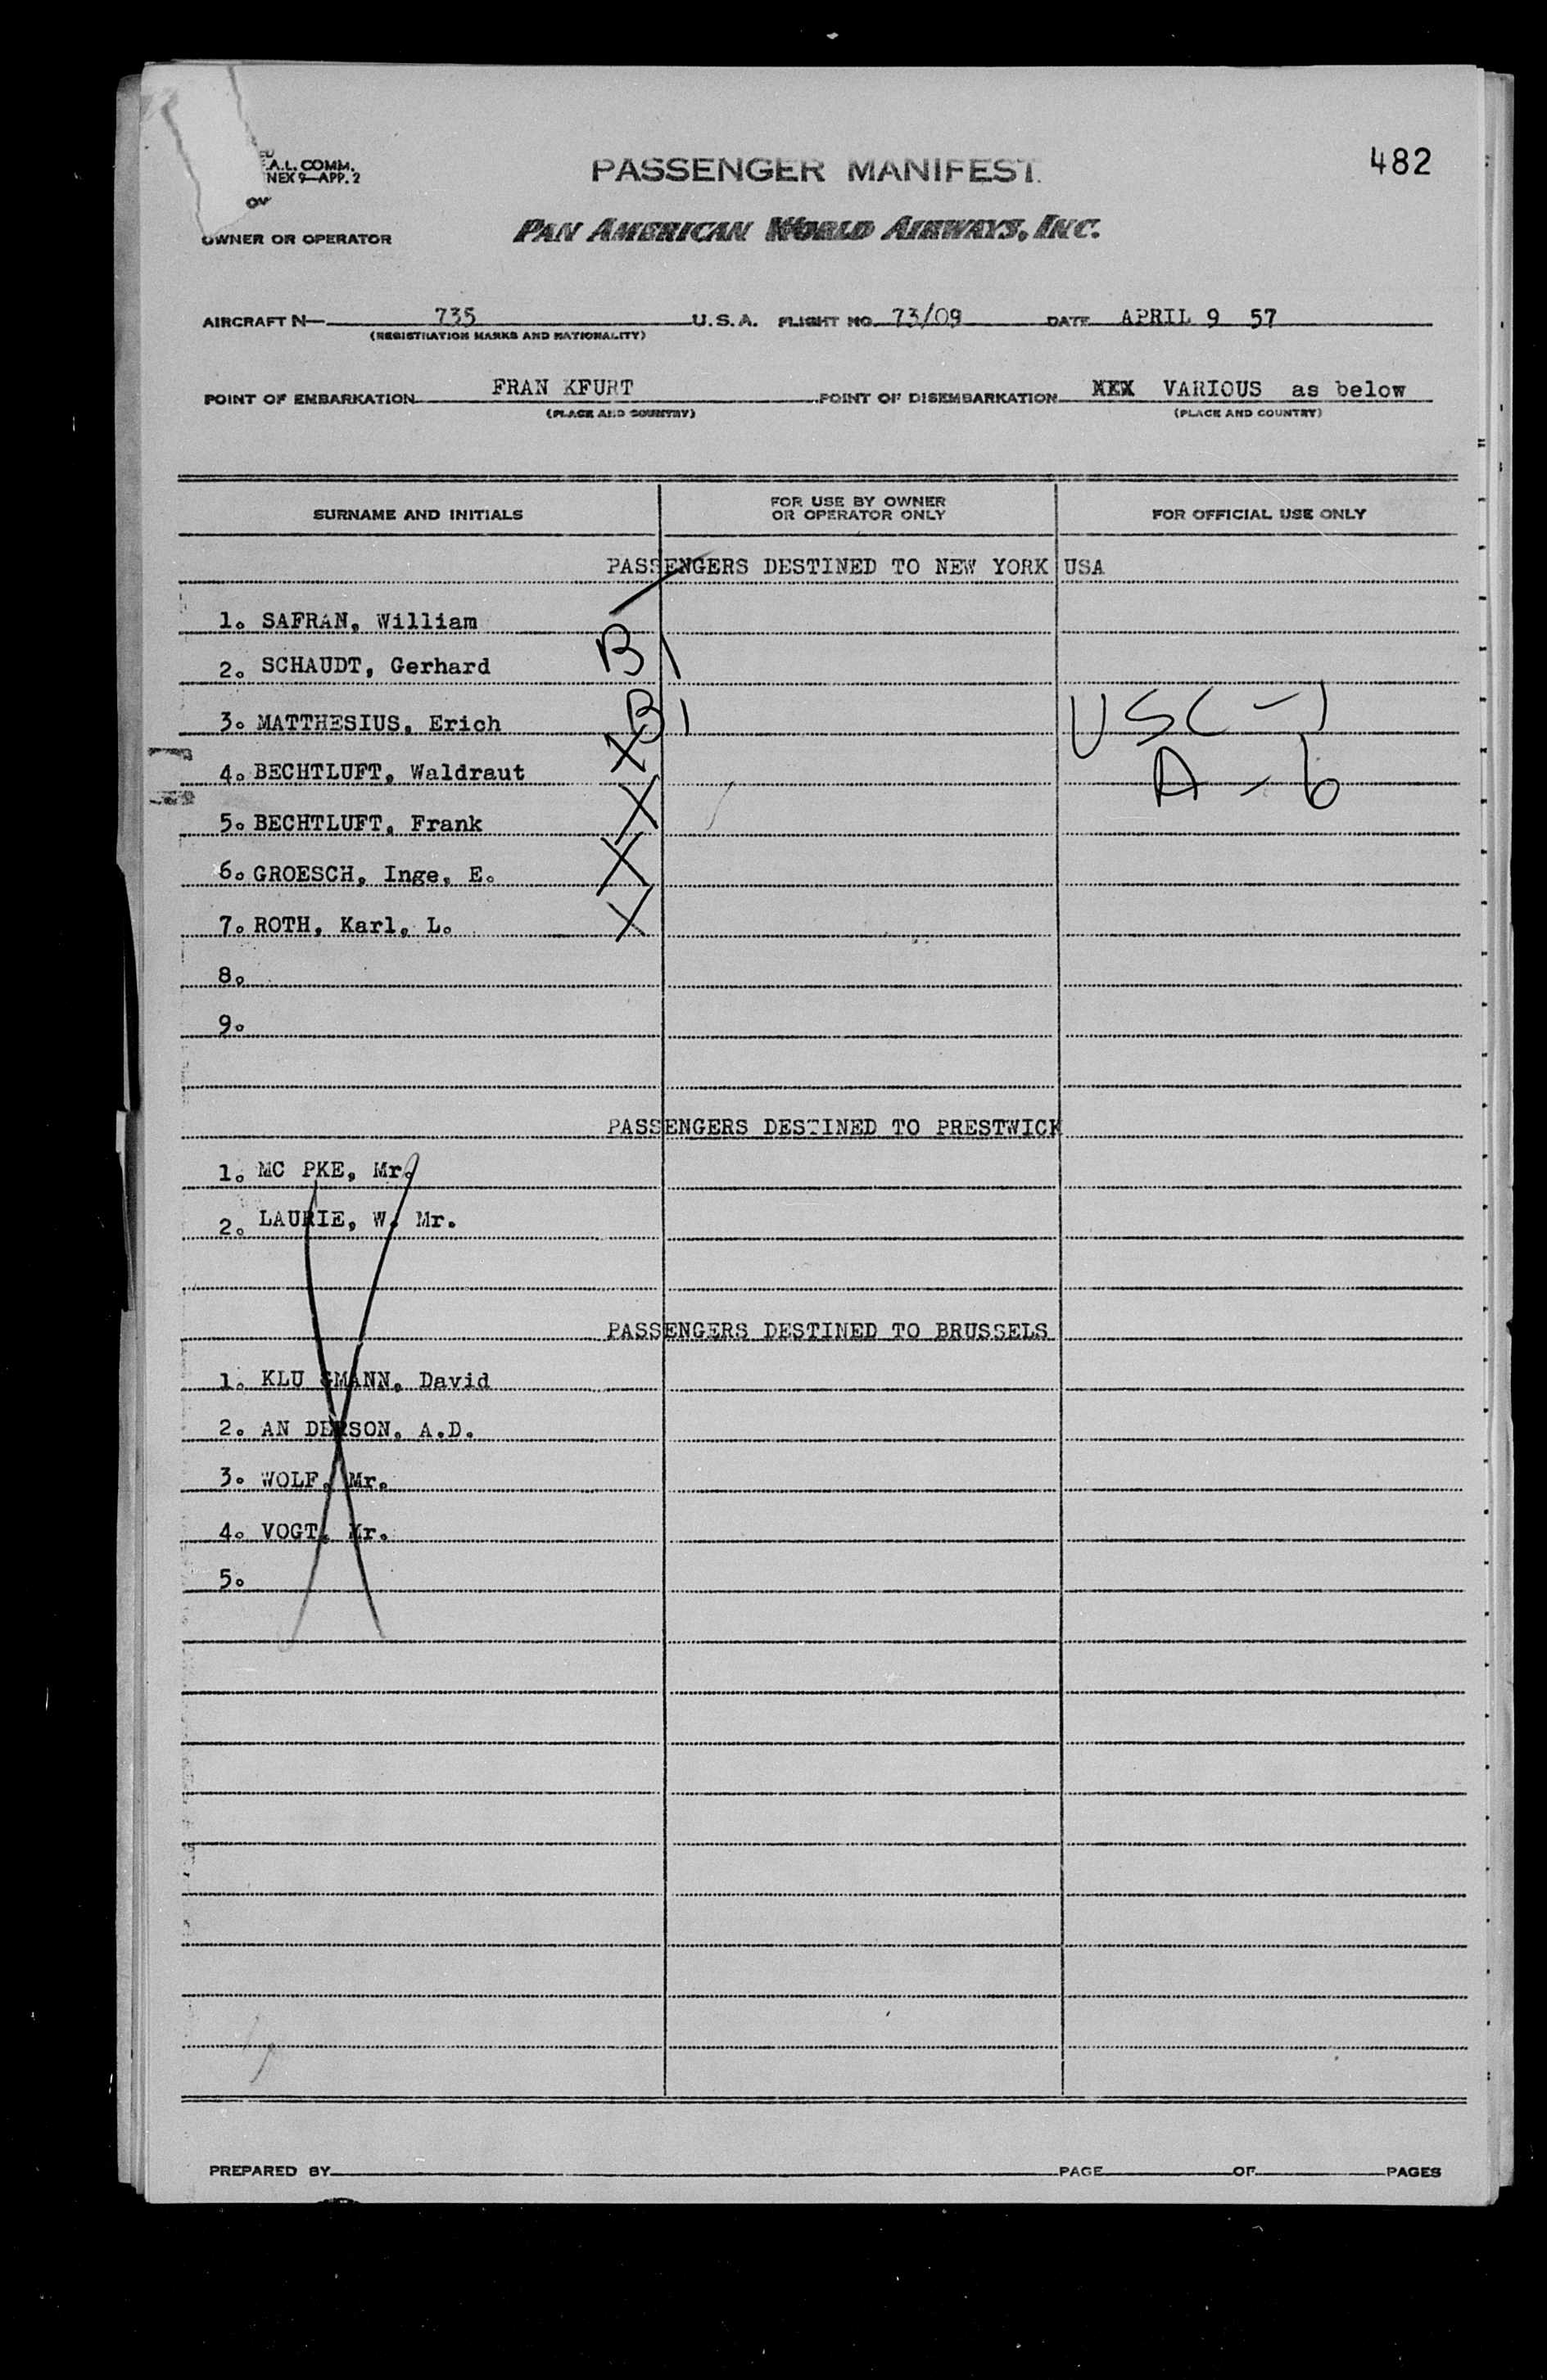 A.L. COMM.
NEX 9—APP. 2
PASSENGER MANIFEST
482
OWNER OR OPERATOR
PAN AMERICAN WORLD AIRWAYS, INC.
AIRCRAFT N— 735 U.S.A. FLIGHT NO. 73/09 DATE APRIL 9 57
(REGISTRATION MARKS AND NATIONALITY)
POINT OF EMBARKATION FRAN KFURT POINT OF DISEMBARKATION VARIOUS as below
(PLACE AND COUNTRY) (PLACE AND COUNTRY)
SURNAME AND INITIALS
FOR USE BY OWNER
OR OPERATOR ONLY
FOR OFFICIAL USE ONLY
PASSENGERS DESTINED TO NEW YORK USA
1. SAFRAN, William
2. SCHAUDT, Gerhard B1
3. MATTHESIUS, Erich B1 USC-1
4. BECHTLUFT, Waldraut X A-6
5. BECHTLUFT, Frank X
6. GROESCH, Inge, E. X
7. ROTH, Karl, L. X
8.
9.
PASSENGERS DESTINED TO PRESTWICK
1. MC PKE, Mr.
2. LAURIE, W. Mr.
PASSENGERS DESTINED TO BRUSSELS
1. KLU GMANN, David
2. AN DERSON, A.D.
3. WOLF, Mr.
4. VOGT, Mr.
5.
PREPARED BY PAGE OF PAGES